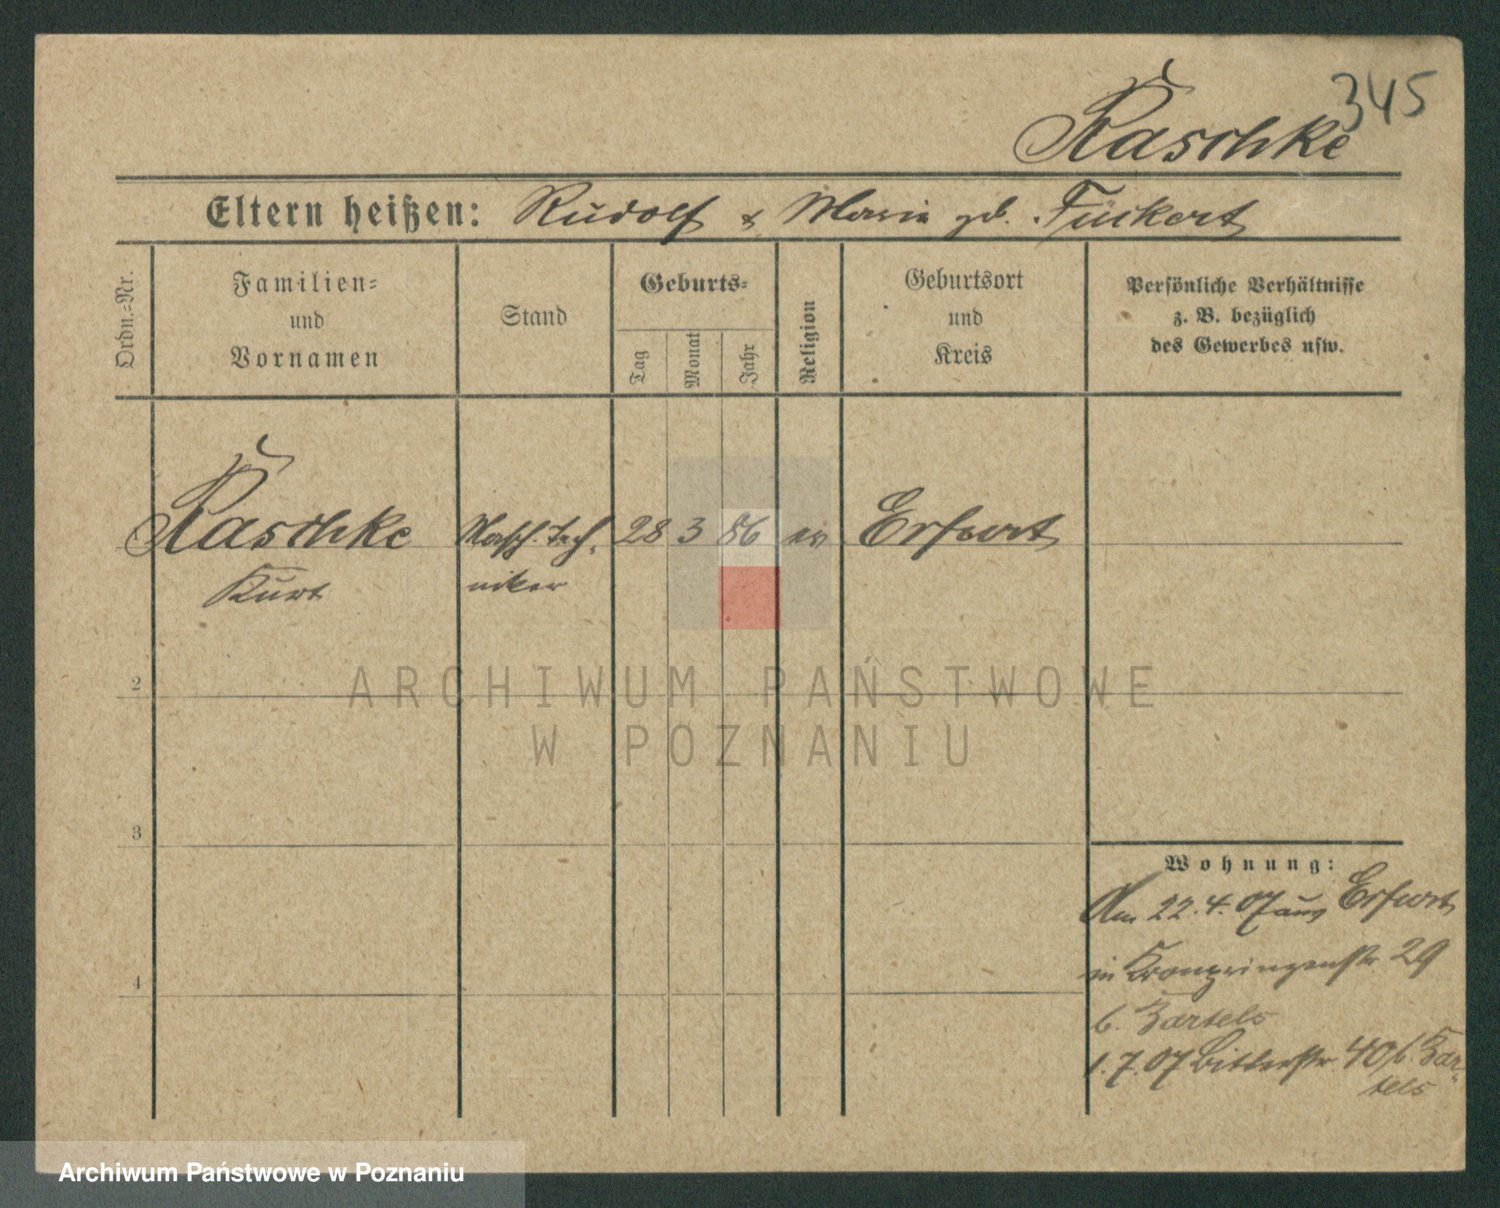 345
Raschke
Eltern heißen: Rudolf & Marie gb. Fückert
Ordn.-Nr.
Familien-
und
Vornamen
Stand
Geburts-
Tag
Monat
Jahr
Religion
Geburtsort
und
Kreis
Persönliche Verhältnisse
z. B. bezüglich
des Gewerbes usw.
Raschke
Kurt
Masch. Tech-
niker
28 3 86 ev
Erfurt
2
3
4
ARCHIWUM PAŃSTWOWE
W POZNANIU
Wohnung:
Am 22.4.07 aus Erfurt
in Kronprinzenstr 29
b. Bartels
1.7.07 40 b. Bar-
tels
Archiwum Państwowe w Poznaniu